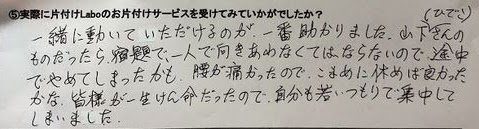 ⑤実際に片付けLaboのお片付けサービスを受けてみていかがでしたか?
(ひでこ)
一緒に動いていただけるのが、一番助かりました。山下さんの
ものだったら、宿題で、一人で向きあわなくてはならないので、途中
でやめてしまったかも。腰が痛かったので、こまめに休めば良かった
かな。皆様が一生けん命だったので、自分も若いつもりで集中して
しまいました。